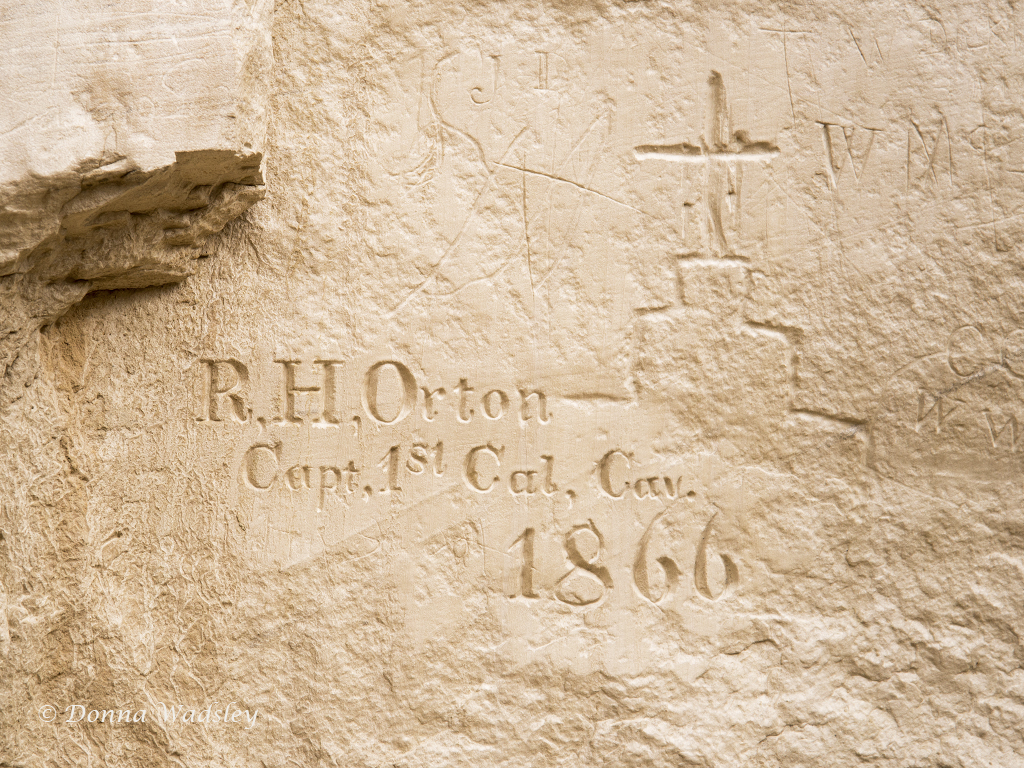 J I
W M
R.H.Orton
Capt. 1st Cal, Cav.
1866
W W
© Donna Wadsley